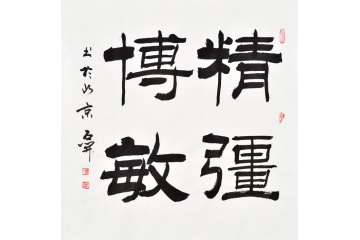 精彊
博敏
书于北京石开